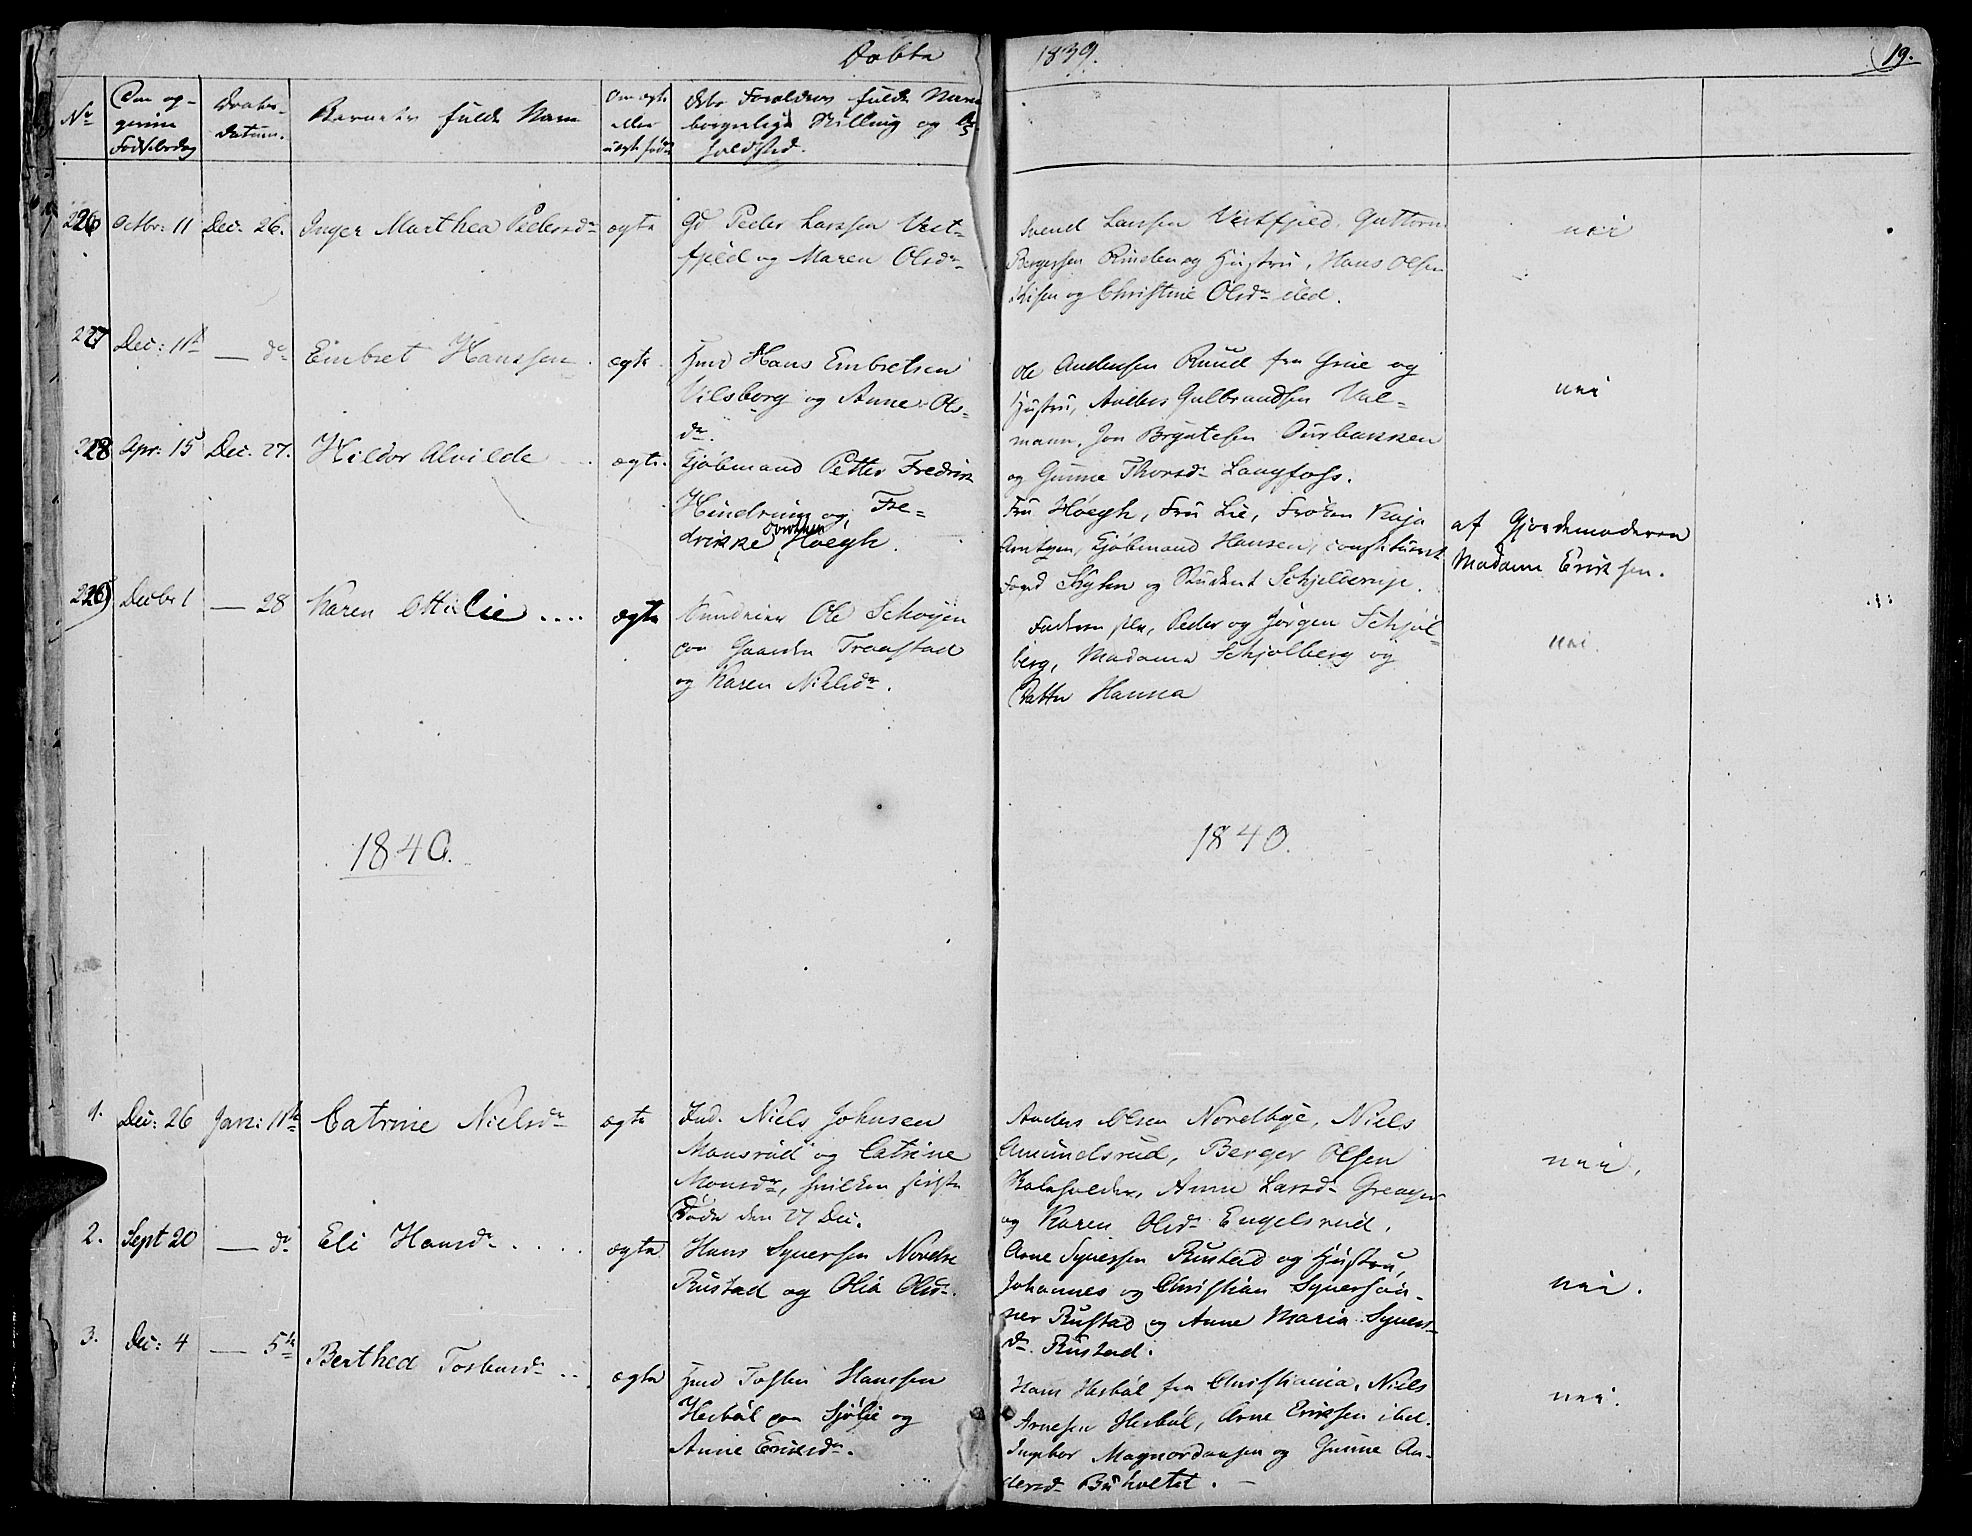 Døbte 1839. 19.
No Den op- givne Fødselsdag
Daabs- datum.
Barnets fulde Navn
Om ægte eller uægte født
dets Forældres fulde Navn borgerlige Stilling og
holdsted.
226 Octbr: 11 Dec. 26. Inger Marthea Pedersdr ægte
Gd Peder Larssen Vest-
fjeld og Maren Olsdr
Svend Larssen Vestfjeld, Guttorm
Bergersen Rinden og Hustru, Hans Olsen
og Christine Olsdr ibed.
nei
227 Dec: 11te — do Embret Hanssen ægte.
Hmd Hans Embretsen
Vilsberg og Anne Ols-
dr.
Ole Andersen Ruud fra Grue og
Hustru, Anders Gulbrandsen Val-
mann, Jon Brynte­sen
og Gunne Thorsdr Langfoss.
nei
228 Apr: 15 Dec. 27. Hildor Alvilde ægte.
Kjøbmand Petter Fredrik
Hindrum og Fre-
drikke Dorothea Høegh.
Fru Høegh, Fru Lie, Frøken Kaja
Arntzen, Kjøbmand Hansen, constitueret
Foged og Student Schjellerup.
af Gjordemoderen
Madame Eriksen.
229 Decbr 1 — 28 Karen Ottilie .... ægte
Ole Schøyen
paa Gaarden Traastad
og Karen Nielsdr.
Faderen selv, Peder og Jørgen Schjøl-
berg, Madame Schjølberg og
Hansea
nei.
1840. 1840.
1. Dec: 26 Jan: 11te Catrine Nielsdr ægte
Ind. Niels Johnsen
Monsrud og Catrine
Monsdr, hvilken sidste
døde den 27 Dec.
Anders Olsen Nordbye, Niels
Amundsrud, Berger Olsen
Anne Larsdr
og Karen Olsdr Engelsrud.
nei.
2. Sept 20 — do Eli Hansdr.... ægte
Hans Syversen Nordre
Rustad og Olia Olsdr.
Arne Syversen Rustad og Hustru,
Johannes og Christian Syversøn-
ner Rustad og Anne Maria Syvers-
dr Rustad.
nei.
3. Dec: 4 — 5te Berthea Torstensdr .. ægte
Hmd Tosten Hanssen
Herbøl paa Sjølie og
Anne Eriksdr.
Hans Herbøl fra Christiania, Niels
Arnesen Herbøl, Arne Eriksen ibd.
Ingebor Magnordausen og Gunne An-
dersdr Buholtet.
nei.